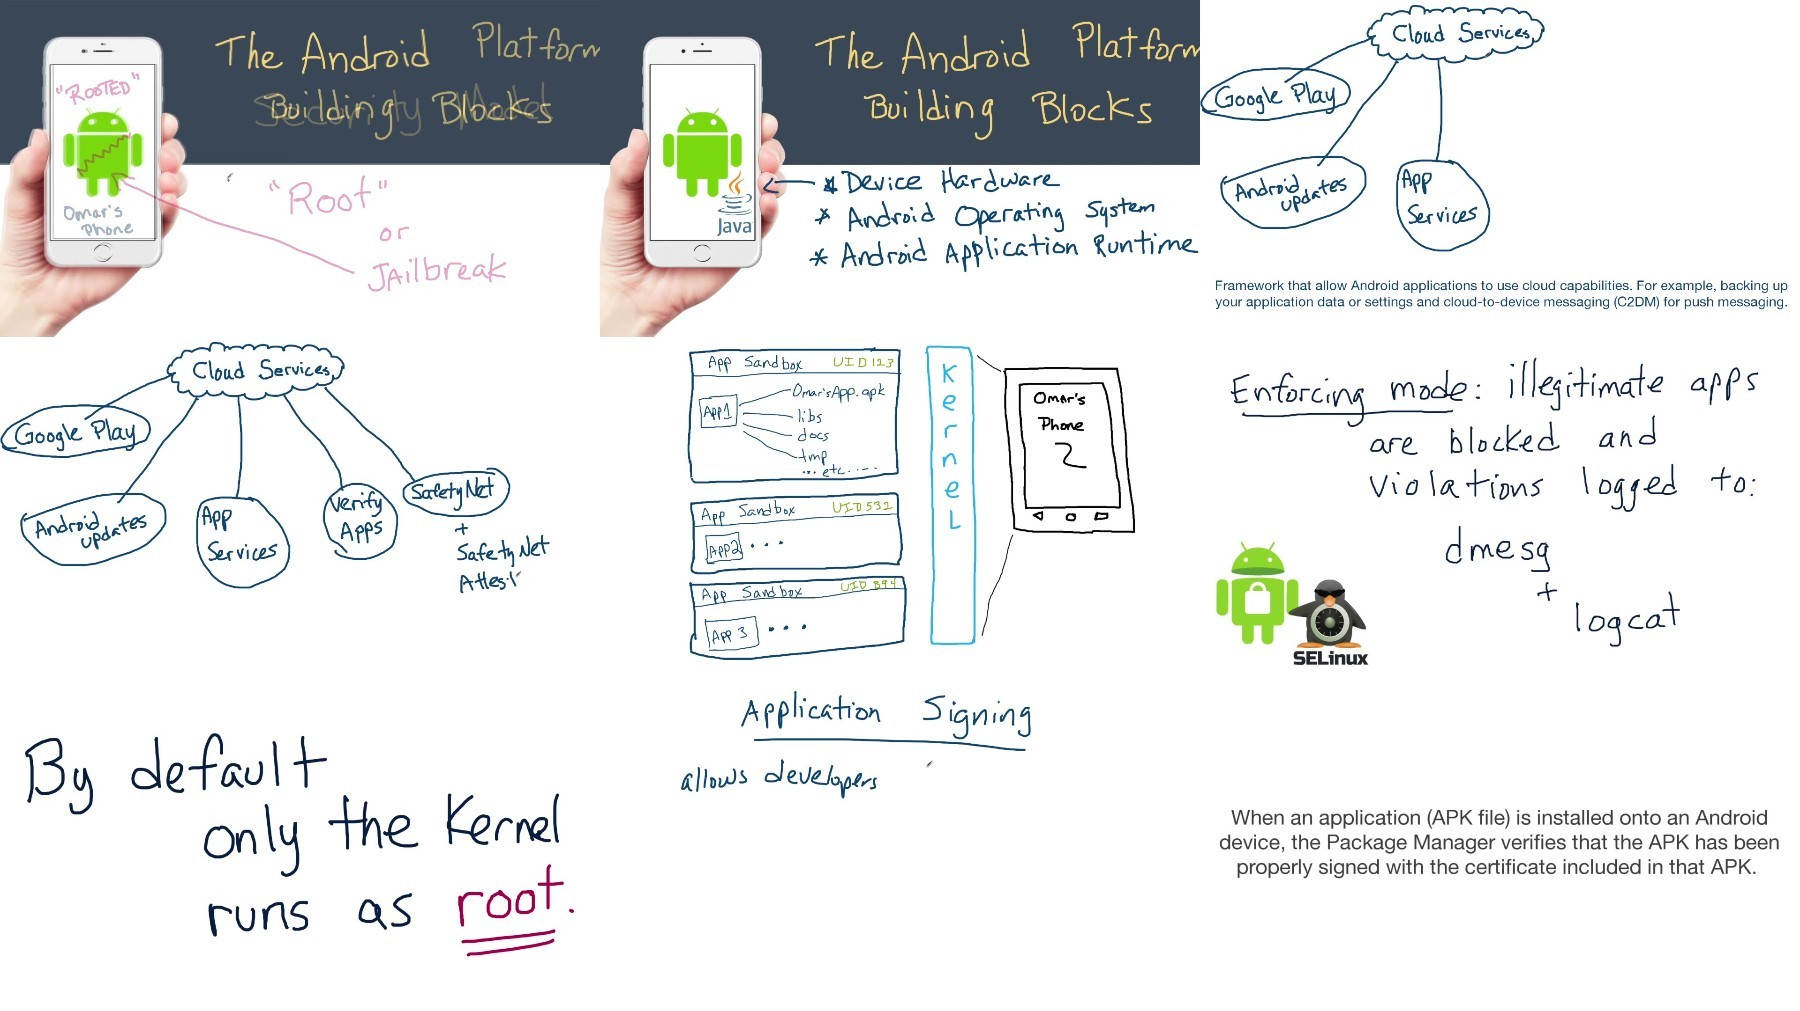 The Android Platform
Building Blocks
"ROOTED"
Omar's
Phone
"Root"
or
JAilbreak
The Android Platform
Building Blocks
Java
* Device Hardware
* Android Operating System
* Android Application Runtime
Cloud Services
Google Play
Android updates
App
Services
Framework that allow Android applications to use cloud capabilities. For example, backing up
your application data or settings and cloud-to-device messaging (C2DM) for push messaging.
Cloud Services
Google Play
Android updates
App
Services
Verify
Apps
SafetyNet
+
SafetyNet
Attest
App Sandbox UID123
App1
Omar'sApp.apk
libs
docs
tmp
... etc. ...
App Sandbox UID532
App2 ...
App Sandbox UID 894
App 3 ...
Kernel
Omar's
Phone
2
Enforcing mode: illegitimate apps
are blocked and
violations logged to:
dmesg
+
logcat
SELinux
By default
only the Kernel
runs as root.
Application Signing
allows developers
When an application (APK file) is installed onto an Android
device, the Package Manager verifies that the APK has been
properly signed with the certificate included in that APK.